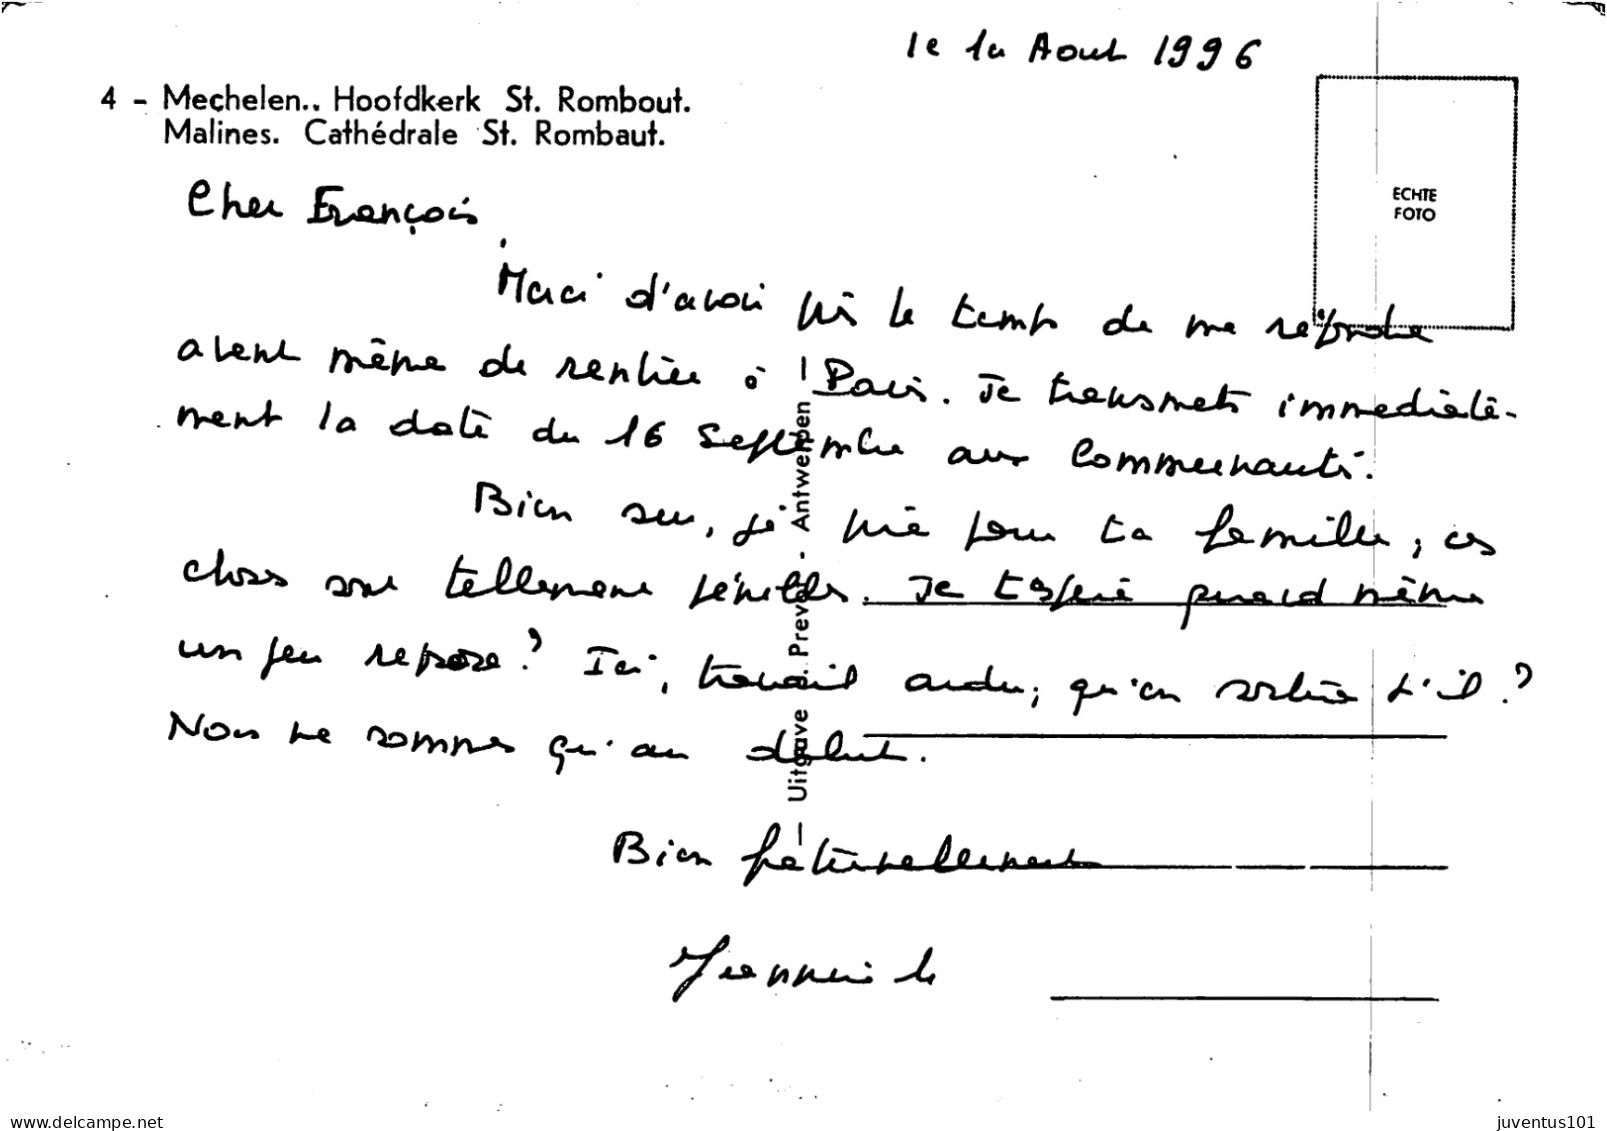 le 1a Aout 1996
4 - Mechelen.. Hoofdkerk St. Rombout.
Malines. Cathédrale St. Rombaut.
ECHTE
FOTO
Cher François,
Merci d'avoir pris le temps de me répondre
avant même de rentrer à Paris. Je transmets immédiate-
ment la date du 16 Septembre aux Communautés.
Bien sur, j'ai prié pour ta famille, ces
choses sont tellement pénibles. Je t'espère quand même
un peu reposé? Ici, travail ardu, qu'en sortira t'il?
Nous ne sommes qu'au début.
Bien fraternellement
Uitgave Prevot - Antwerpen
delcampe.net
juventus101